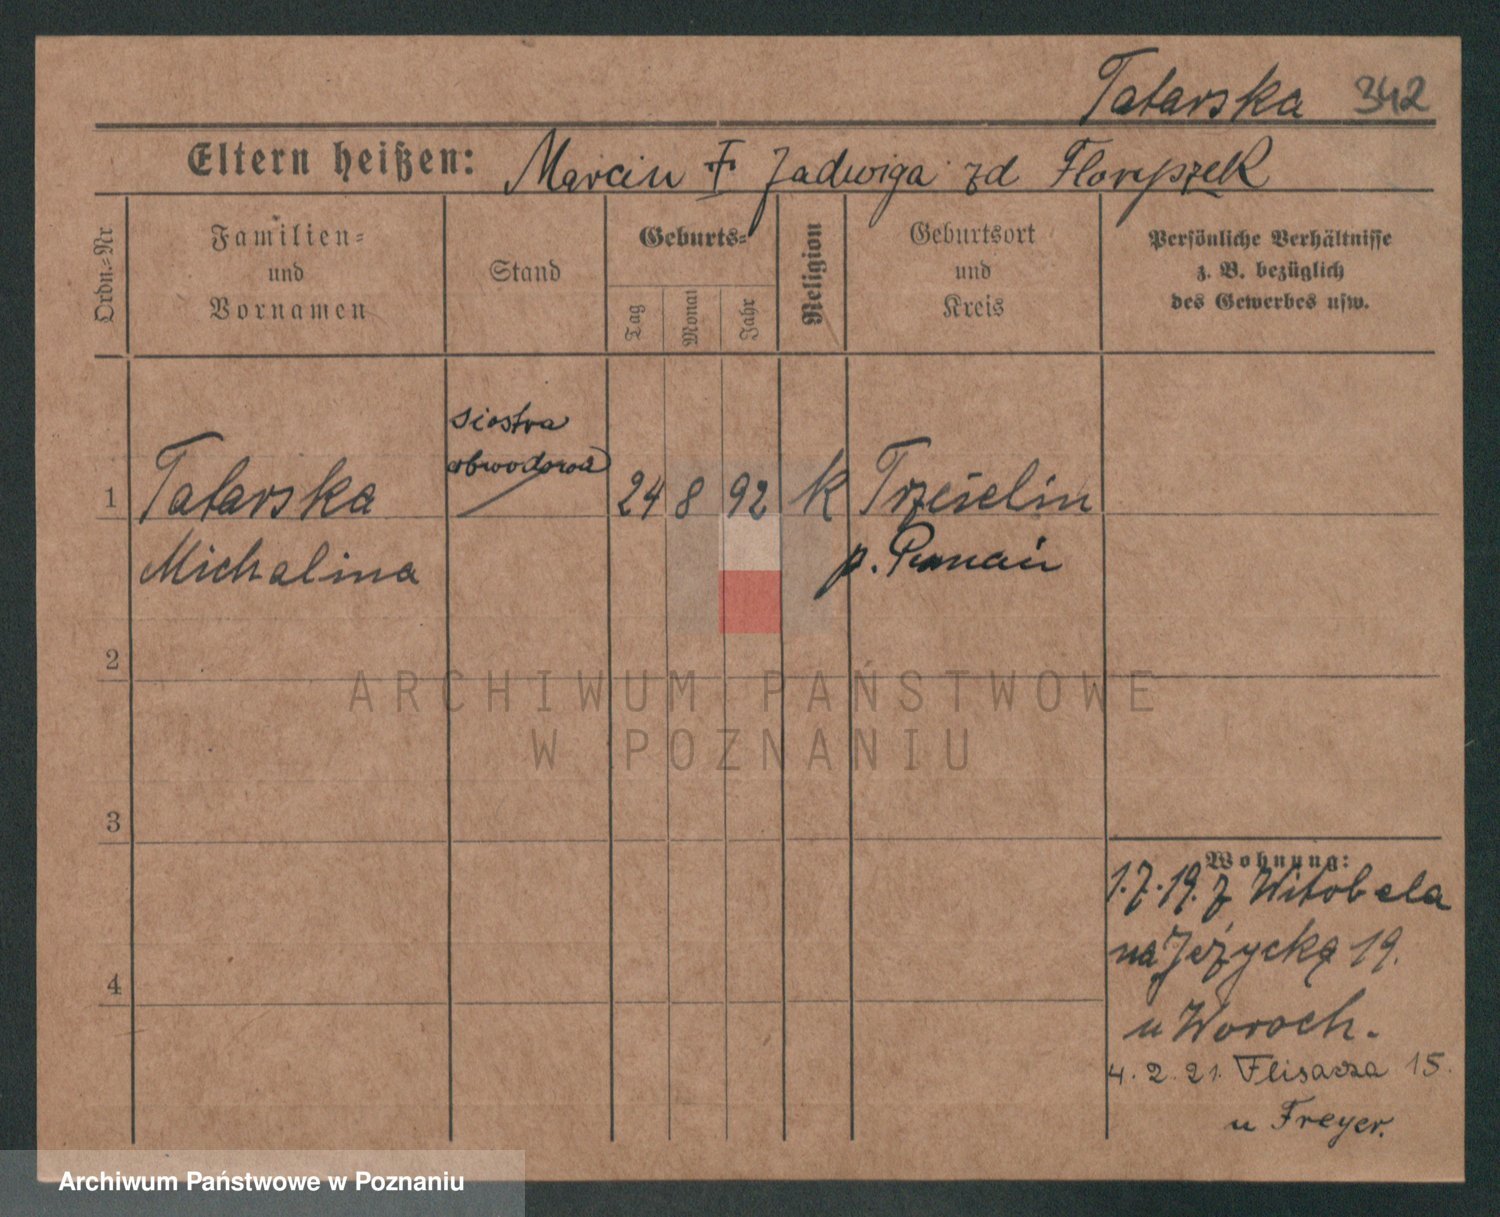 Tatarska 342
Eltern heißen: Marcin i Jadwiga zd Floryszek
Ordn.-Nr
Familien-
und
Vornamen
Stand
Geburts-
Tag
Monat
Jahr
Religion
Geburtsort
und
Kreis
Persönliche Verhältnisse
z. B. bezüglich
des Gewerbes usw.
siostra
obwodowa
1 Tatarska 24 8 92 k Trzcielin
Michalina p. Poznań
2
ARCHIWUM PAŃSTWOWE
W POZNANIU
3
Wohnung:
1.7.19. z Witobela
na Jeżycką 19.
4
u Woroch.
4.2.21. Flisacza 15.
u Freyer.
Archiwum Państwowe w Poznaniu